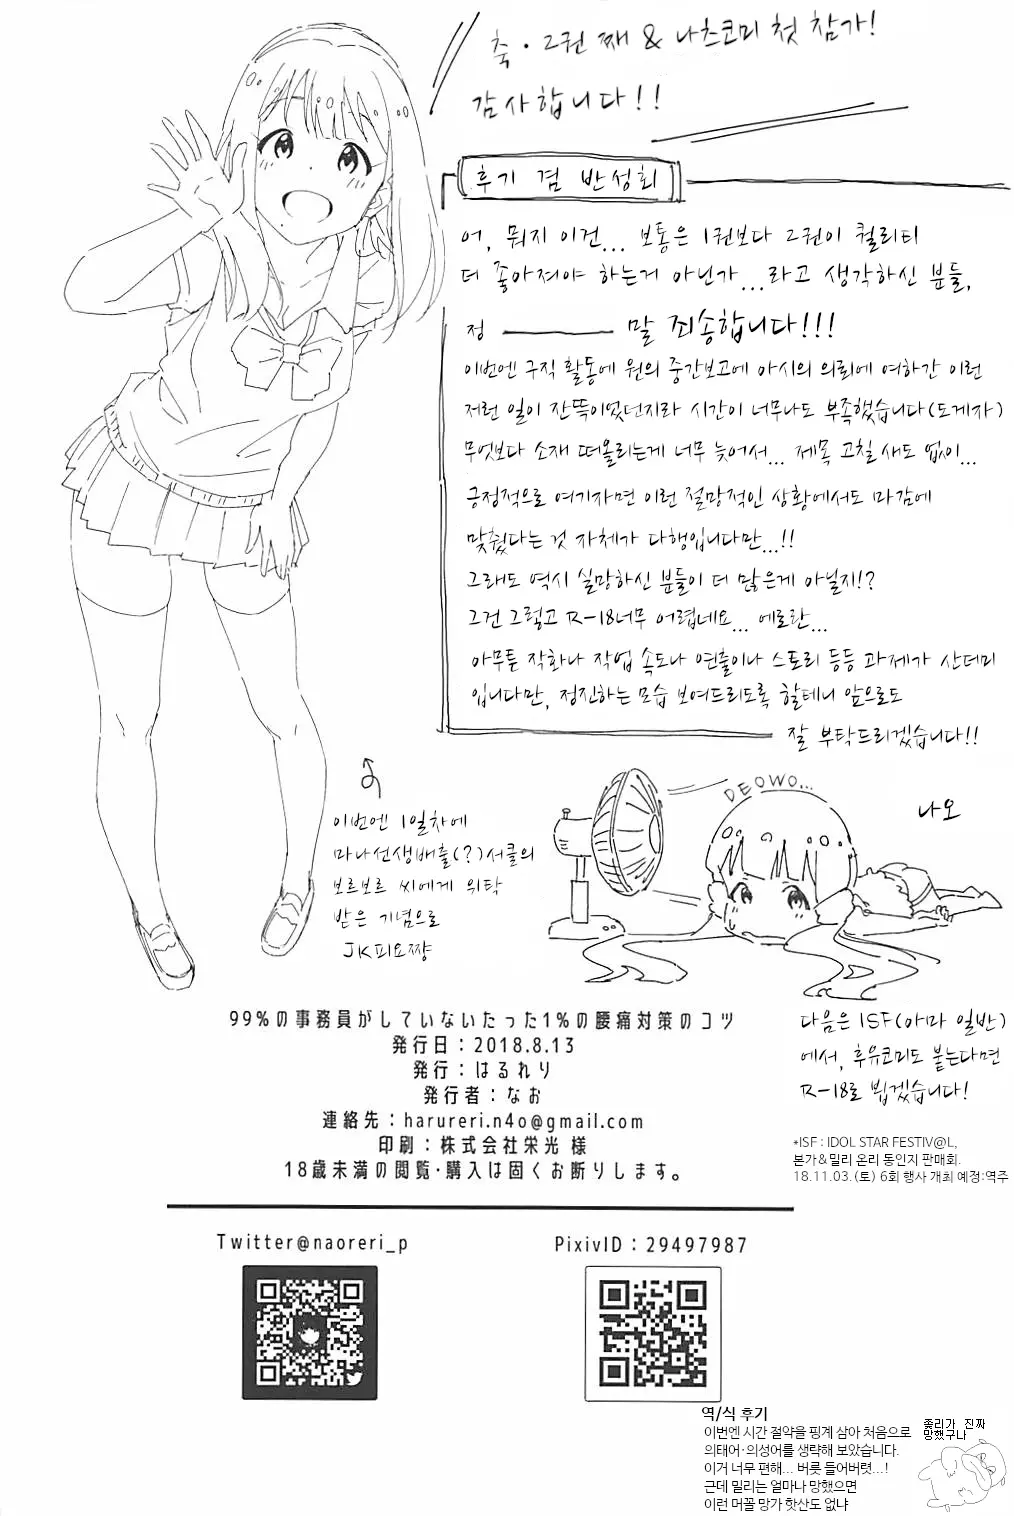 축·2권 째 & 나츠코미 첫 참가!
감사합니다!!
후기 겸 반성회
어, 뭐지 이건... 보통은 1권보다 2권이 퀄리티
더 좋아져야 하는거 아닌가...라고 생각하신 분들,
정 ――― 말 죄송합니다!!!
이번엔 구직 활동에 원의 중간보고에 아시의 의뢰에 여하간 이런
저런 일이 잔뜩이었던지라 시간이 너무나도 부족했습니다(도게자)
무엇보다 소재 떠올리는게 너무 늦어서... 제목 고칠 새도 없이...
긍정적으로 여기자면 이런 절망적인 상황에서도 마감에
맞췄다는 것 자체가 다행입니다만...!!
그래도 역시 실망하신 분들이 더 많은게 아닐지!?
그건 그렇고 R-18너무 어렵네요... 에로란...
아무튼 작화나 작업 속도나 연출이나 스토리 등등 과제가 산더미
입니다만, 정진하는 모습 보여드리도록 할테니 앞으로도
잘 부탁드리겠습니다!!
이번엔 1일차에
마나선생배출(?)서클의
보르보르 씨에게 위탁
받은 기념으로
JK피요쨩
DEOWO...
나오
다음은 ISF(아마 일반)
에서, 후유코미도 붙는다면
R-18로 뵙겠습니다!
*ISF : IDOL STAR FESTIV@L,
본가&밀리 온리 동인지 판매회.
18.11.03.(토) 6회 행사 개최 예정:역주
99%の事務員がしていないたった1%の腰痛対策のコツ
発行日：2018.8.13
発行：はるれり
発行者：なお
連絡先：harureri.n4o@gmail.com
印刷：株式会社栄光 様
18歳未満の閲覧・購入は固くお断りします。
Twitter@naoreri_p
PixivID：29497987
역/식 후기
이번엔 시간 절약을 핑계 삼아 처음으로
의태어·의성어를 생략해 보았습니다.
이거 너무 편해... 버릇 들어버렷...!
근데 밀리는 얼마나 망했으면
이런 머꼴 망가 핫산도 없냐
좆리가 진짜
망했구나